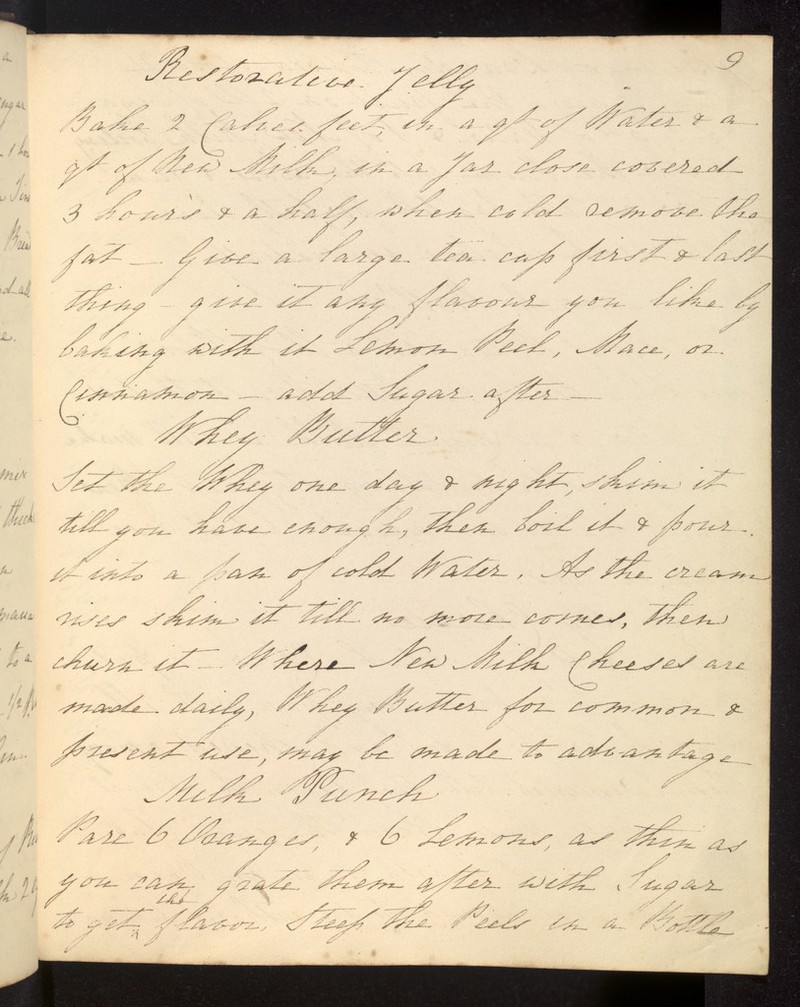 9
Restorative Jelly
Bake 2 Calves feet in a qt of Water & a
qt of New Milk, in a Jar close covered
3 hour's & a half, when cold remove the
fat - Give a large tea cup first & last
thing - give it any flavour you like by
baking with it Lemon Peel, Mace, or
Cinnamon - add Sugar after -
Whey Butter
Set the Whey one day & night, skim it
till you have enough, then boil it & pour
it into a pan of cold Water. As the cream
rises skim it till no more comes, then
churn it - Where New Milk Cheeses are
made daily, Whey Butter for common &
present use, may be made to advantage
Milk Punch
Pare 6 Oranges, & 6 Lemons, as thin as
you can, grate them after with Sugar
to get the flavor. Steep the Peels in a Bottle